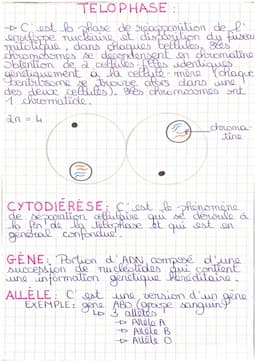 TELOPHASE :
→ C'est la phase de réapparition de l'
enveloppe nucléaire et disparition du fuseau
mitotique, dans chaques cellules, 2les
chromosomes se décondensent en chromatine
Obtention de 2 cellules-filles identiques
génétiquement à la cellule-mère (chaque
centriosome se trouve alors dans une
des deux cellules). Les chromosomes ont
1 chromatide.
2n = 4
chroma-
tine
CYTODIÉRÈSE : C'est le phénomène
de séparation cellulaire qui se déroule à
la fin de la télophase et qui est en
général confondue.
GÈNE : Portion d'ADN, composé d'une
succession de nucléotides qui contient
une information génétique héréditaire.
ALLÈLE : C'est une version d'un gène
EXEMPLE : gène ABO (groupe sanguin)
↳ 3 allèles
→ Allèle A
→ Allèle B
→ Allèle O